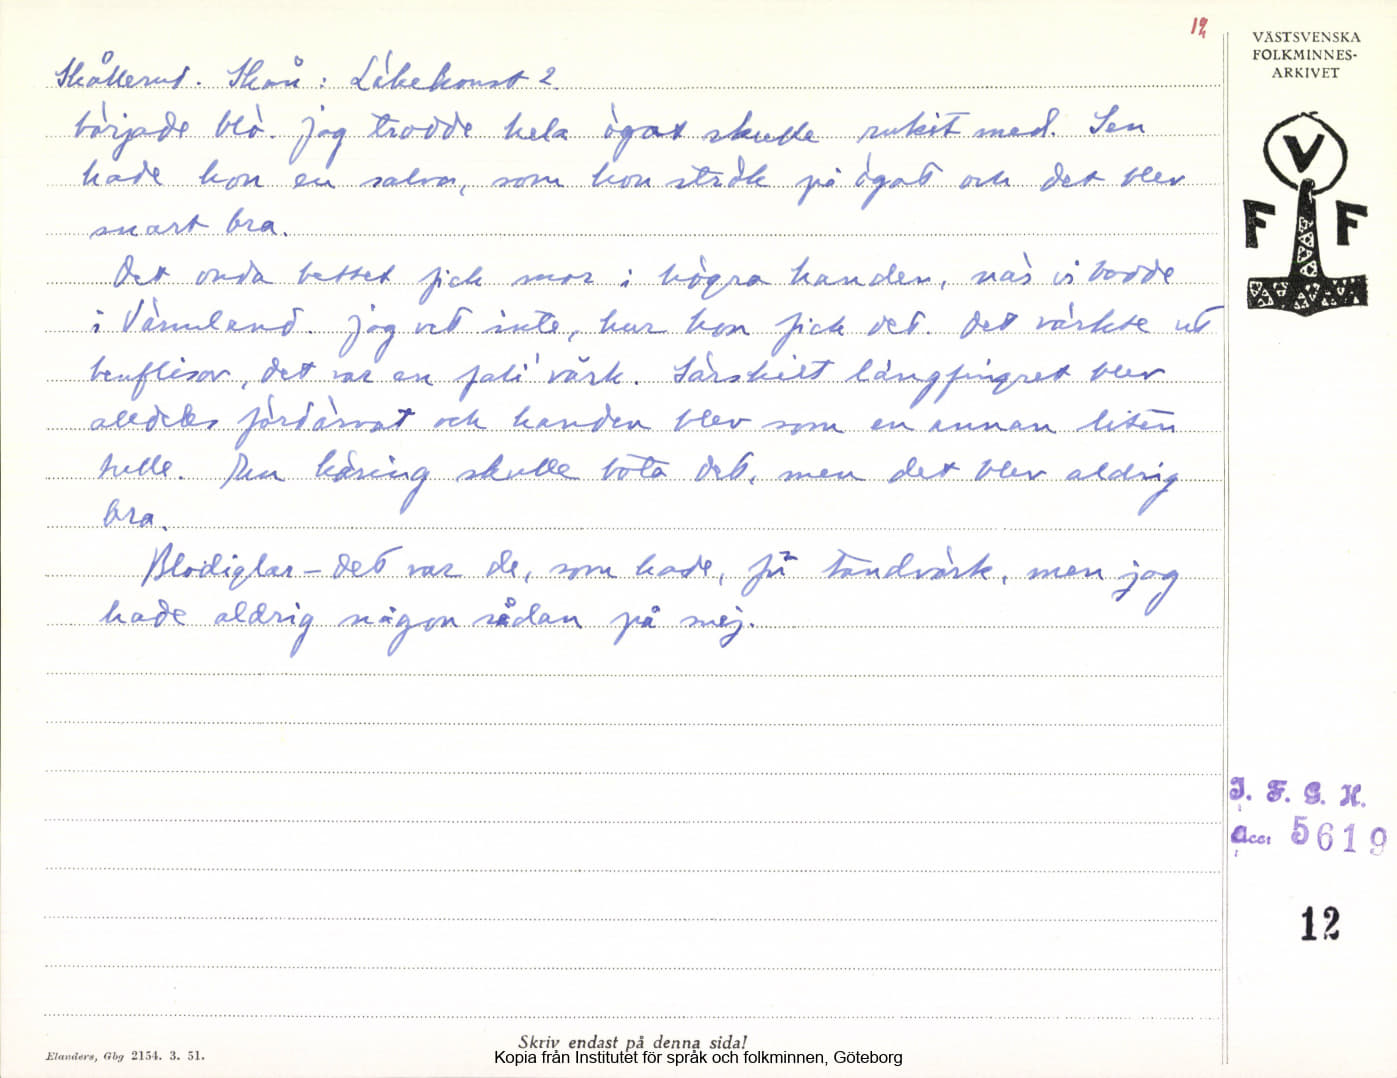 12
VÄSTSVENSKA
FOLKMINNES-
ARKIVET
V
F F
Skållerud. Skoú: Läkekonst 2.
började blö. Jag trodde hela ögat skulle rukit med. Sen
hade hon en salva, som hon strök på ögat och det blev
snart bra.
Det onda bettet fick mor i högra handen, när vi bodde
i Värmland. Jag vet inte, hur hon fick det. Det värkte ut
benflisor, det var en fali värk. Särskilt långfingret blev
alldeles fördärvat och handen blev som en annan liten
hulle. En käring skulle bota det, men det blev aldrig
bra.
Blodiglar – det var de, som hade, för tandvärk, men jag
hade aldrig någon sådan på mej.
I. F. G. H.
Acc: 5619
12
Skriv endast på denna sida!
Elanders, Gbg 2154. 3. 51.
Kopia från Institutet för språk och folkminnen, Göteborg